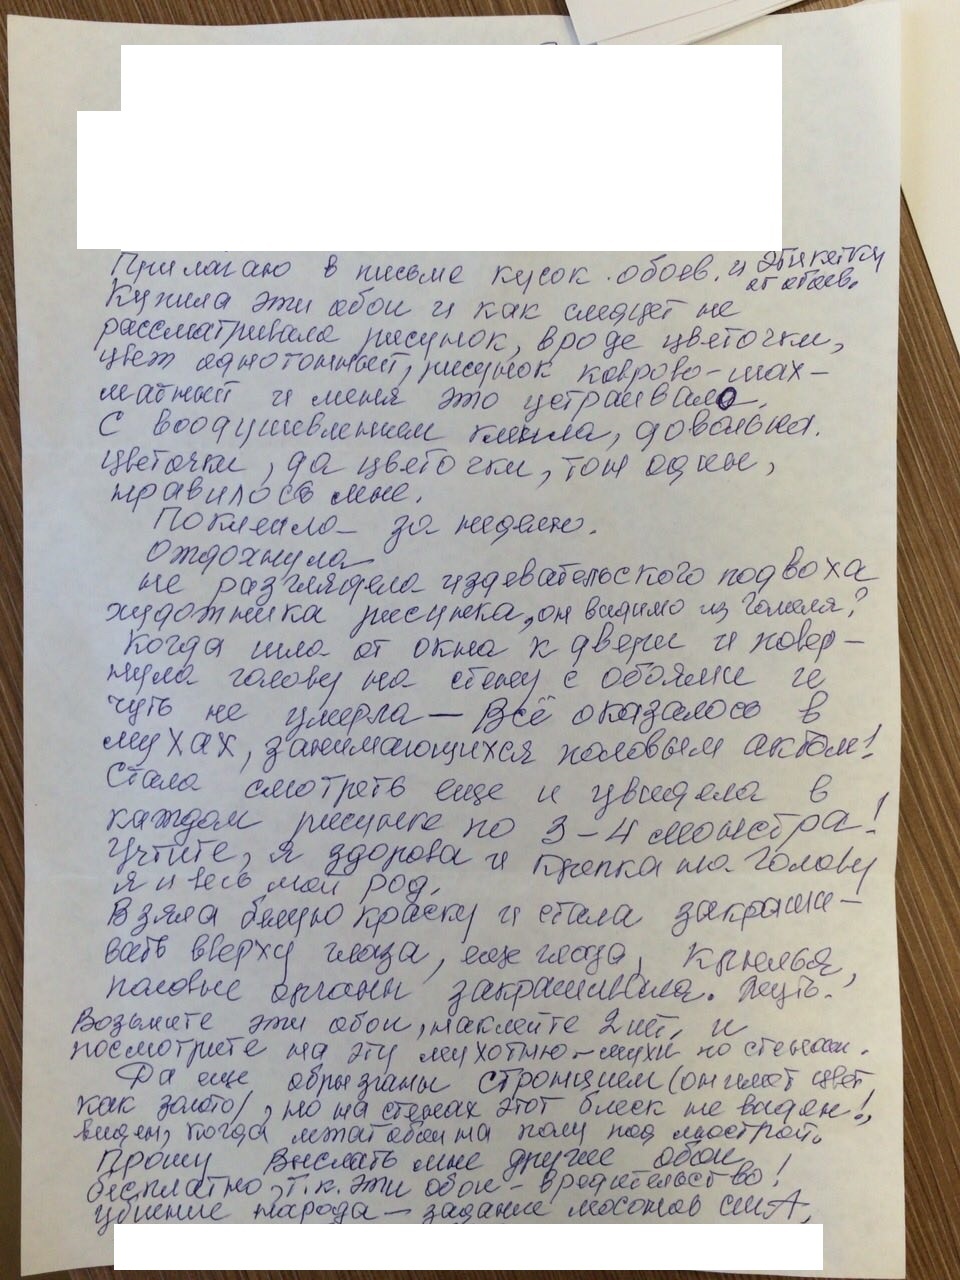 Прилагаю в письме кусок обоев. и этикетку
от обоев.
Купила эти обои и как следует не
рассматривала рисунок, вроде цветочки,
цвет однотонный, рисунок коврово-шах-
матный и меня это устраивало.
С воодушевлением клеила, довольна.
цветочки, да цветочки, тон один,
нравилось мне.
Поклеила за неделю.
Отдохнула
не разглядела издевательского подвоха
художника рисунка, он видимо из Гомеля?
Когда шла от окна к двери и повер-
нула голову на стену с обоями и
чуть не умерла — Всё оказалось в
мухах, занимающихся половым актом!
Стала смотреть еще и увидела в
каждом рисунке по 3-4 монстра!
Учтите, я здорова и крепка на голову
я и весь мой род.
Взяла белую краску и стала закраши-
вать вверху глаза, еще глаза, крылья,
половые органы закрашивала. Жуть.
Возьмите эти обои, наклейте 2 шт, и
посмотрите на эту мухотню-мухи по стенам.
Да еще обрызганы стронцием (он имеет цвет
как золото), но на стенах этот блеск не виден!,
виден, когда лежат обои на полу под люстрой.
Прошу выслать мне другие обои
бесплатно, т.к. эти обои - вредительство!
Убиение народа — задание масонов сшА,